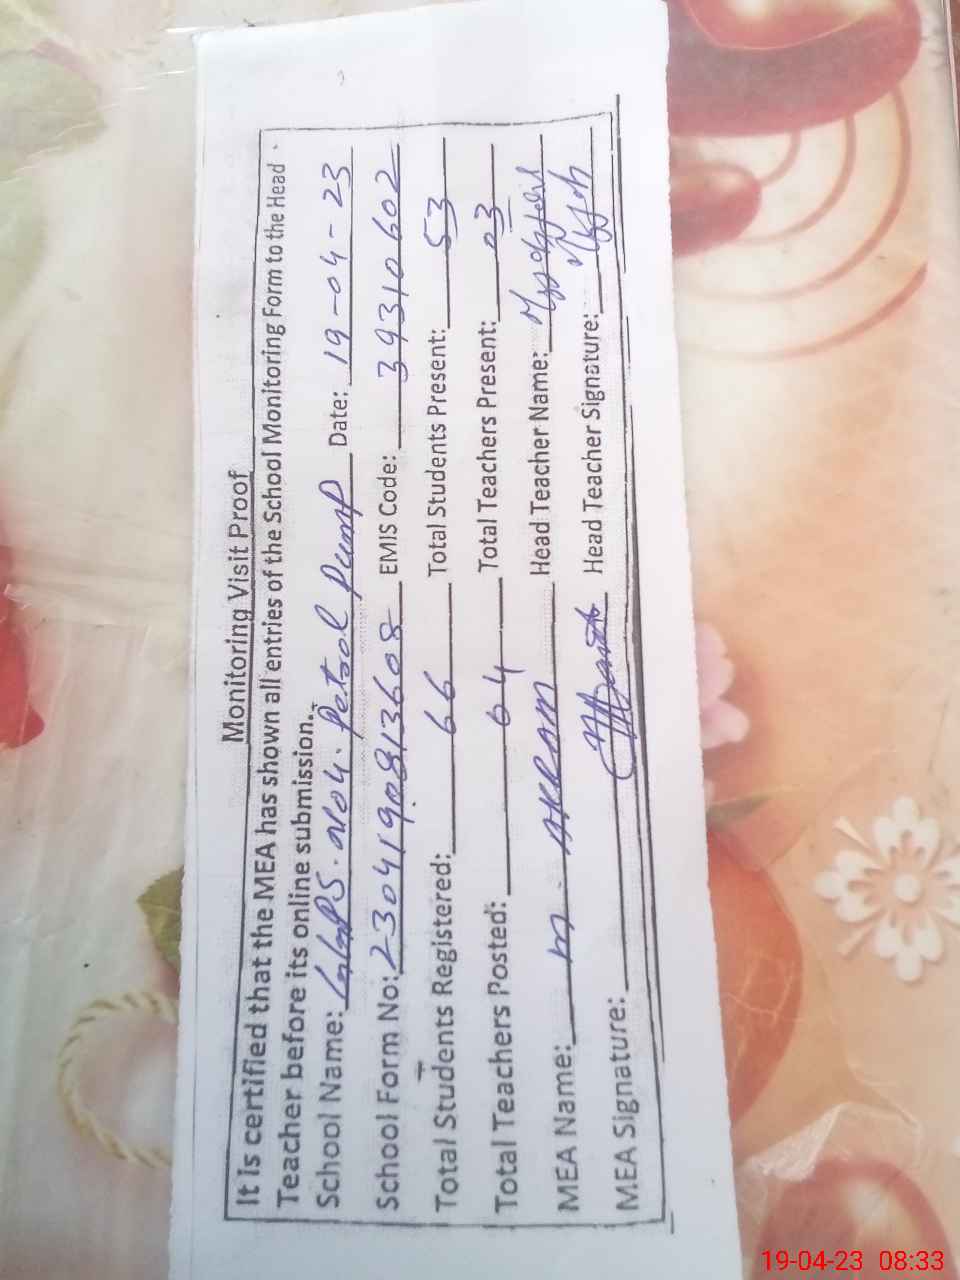 Monitoring Visit Proof
It is certified that the MEA has shown all entries of the School Monitoring Form to the Head
Teacher before its online submission.
School Name: GGPS. No4. Petrol Pump Date: 19-04-23
School Form No: 2304190813608 EMIS Code: 39310602
Total Students Registered: 66 Total Students Present: 53
Total Teachers Posted: 04 Total Teachers Present: 03
MEA Name: M. AKRAM Head Teacher Name:
MEA Signature: Head Teacher Signature:
19-04-23 08:33